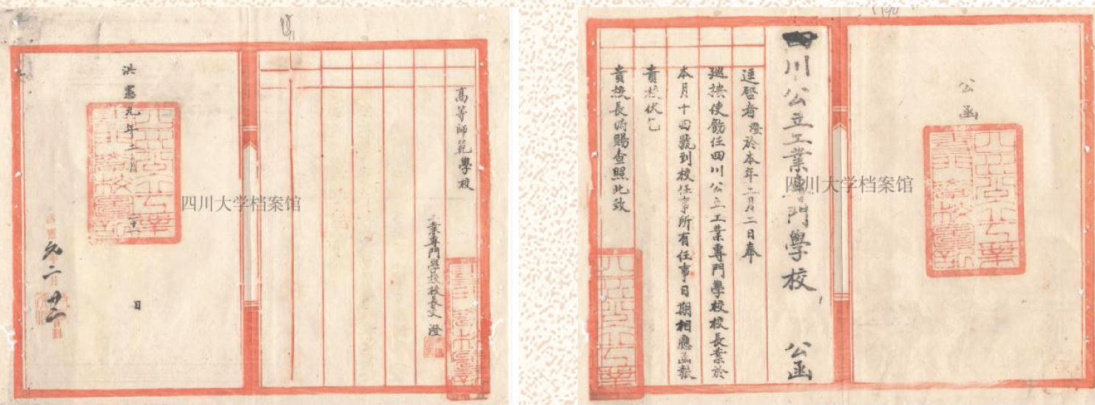 公函
四川公立工業專門學校 公函
逕啓者澄於本年二月二日奉
巡按使飭任四川公立工業專門學校校長業於
本月十四號到校任事所有任事日期相應函報
貴校伏乞
貴校長俯賜查照此致
高等師範學校
業專門學校校長文澄
洪憲元年二月
日
四川大学档案馆
四川大学档案馆